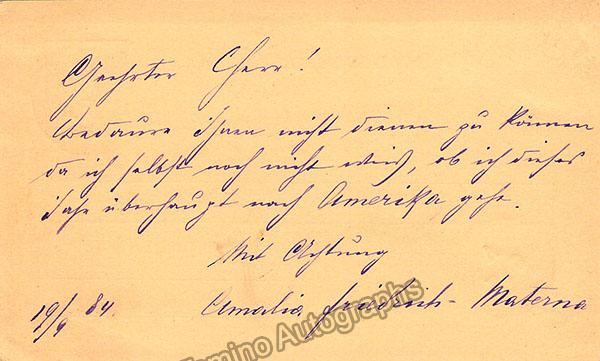 Geehrter Herr!
Bedaure Ihnen nicht dienen zu können
da ich selbst noch nicht weiß, ob ich dieses
Jahr überhaupt nach Amerika gehe.
Mit Achtung
19/9 84. Amalia Friedrich-Materna
Tamino Autographs